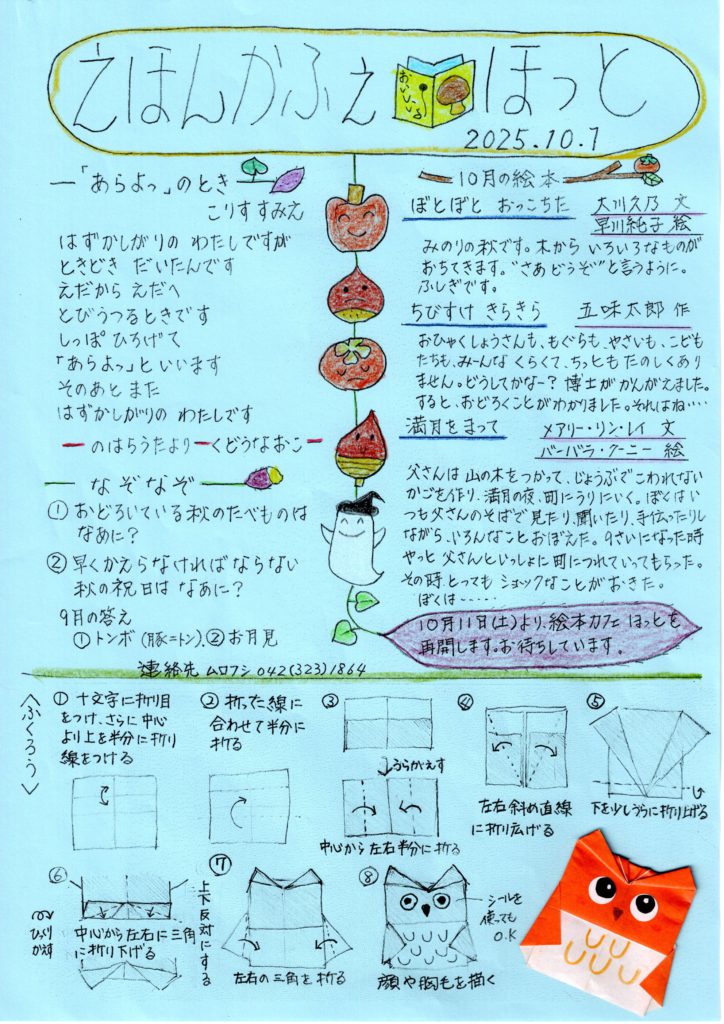 えほんかふぇ ほっと
おいしいなあ
2025.10.1
―「あらよっ」のとき
こりすすみえ
はずかしがりの わたしですが
ときどき だいたんです
えだから えだへ
とびうつるときです
しっぽ ひろげて
「あらよっ」といいます
そのあと また
はずかしがりの わたしです
― のはらうたより ― くどうなおこ ―
― なぞなぞ ―
① おどろいている秋のたべものは
なあに?
② 早くかえらなければならない
秋の祝日は なあに?
9月の答え
①トンボ(豚=トン)、②お月見
連絡先 ムロフシ 042(323)1864
― 10月の絵本
ぼとぼと おっこちた 大川久乃 文
早川純子 絵
みのりの秋です。木から いろいろなものが
おちてきます。"さあどうぞ"と言うように。
ふしぎです。
ちびすけ きらきら 五味太郎 作
おひゃくしょうさんも、もぐらも、やさいも、こども
たちも、みーんな くらくて、ちっとも たのしくあり
ません。どうしてかなー? 博士が かんがえました。
すると、おどろくことがわかりました。それはね‥‥
満月をまって メアリー・リン・レイ 文
バーバラ・クーニー 絵
父さんは 山の木をつかって、じょうぶで こわれない
かごを作り、満月の夜、町にうりにいく。ぼくはい
つも父さんのそばで見たり、聞いたり、手伝ったりし
ながら、いろんなことおぼえた。9さいになった時
やっと 父さんといっしょに 町につれていってもらった。
その時 とっても ショックなことがおきた。
ぼくは‥‥‥
10月11日(土)より、絵本カフェ ほっとを
再開します。お待ちしています。
〈ふくろう〉
① 十文字に折り目
をつけ、さらに中心
より上を半分に折り
線をつける
② 折った線に
合わせて半分に
折る
③
うらがえす
中心から左右半分に折る
④
左右斜め直線
に折り広げる
⑤
下を少しうらに折り上げる
⑥
ひっくり
かえす
中心から左右に三角
に折り下げる
上下反対にする
⑦
左右の三角を折る
⑧
シールを
使っても
O.K
顔や胸毛を描く